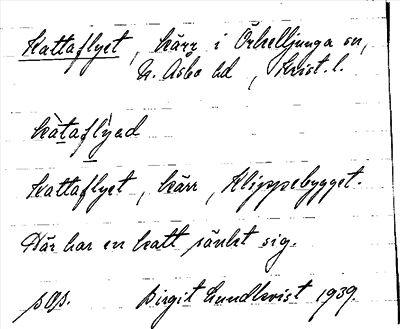 Kattaflyet, kärr i Örkelljunga sn,
N. Åsbo hd, Krist. l.
kàtaflýad
Kattaflyet, kärr, Klippebygget.
Där har en katt sänkt sig.
Birgit Lundkvist 1939.